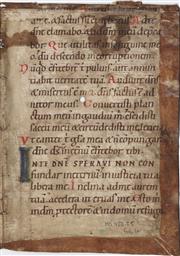 dne clamabo & ad dm meu depca
bor Que utilitas in sanguine meo
du descendo in corruptionem
quid confitebit t puluis aut annun
tiabit ueritate tua Audiuit dns
& misertus e mei dns factus e ad
iutor meus Conuertisti plan
ctum meu in gaudiu m conscidisti
saccu meu & circudedisti me leticia
Ut cantet t gla mea & n copungar
dne ds ms in eternu confitebor tibi
IN TE DNE SPERAVI NON CON
fundar in eternu in iusticia tua
libera me Inclina ad me aurem
tua accelera ut eruas me Esto m
in dm ptectore & in domu refugii